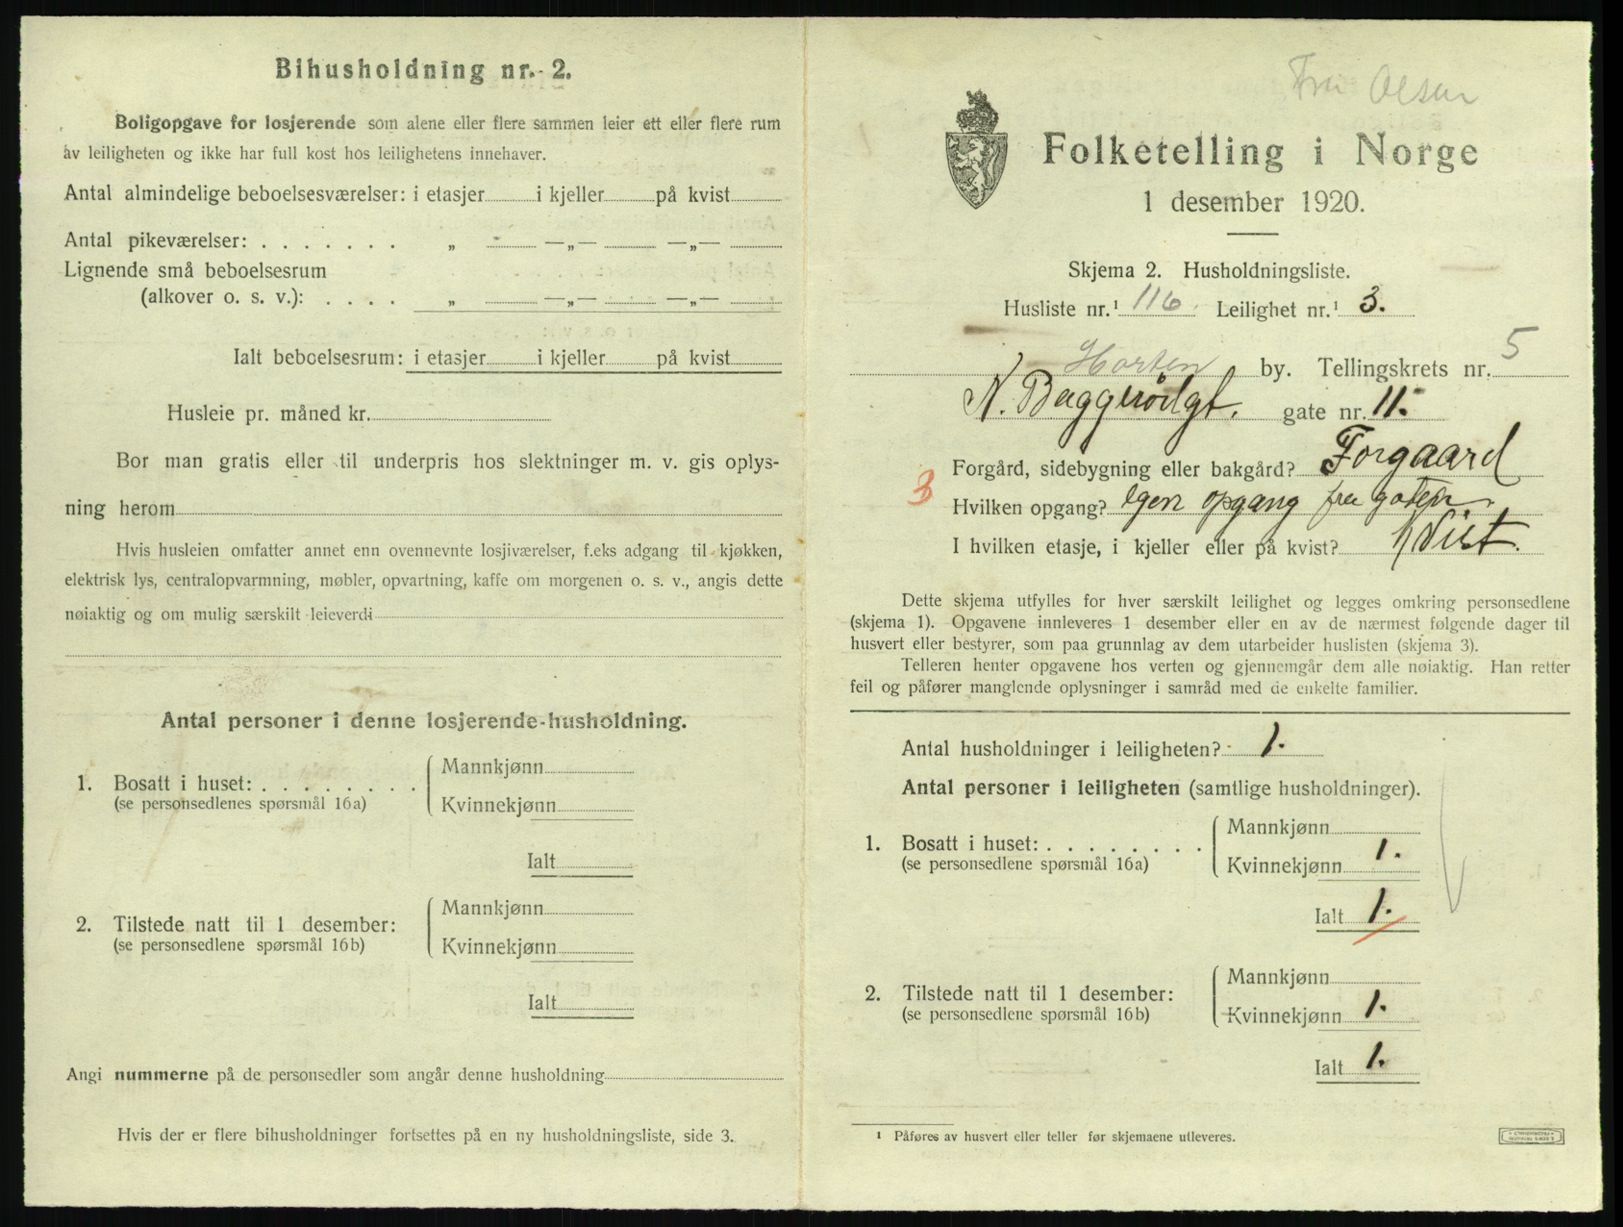 Bihusholdning nr. 2.
Boligopgave for losjerende som alene eller flere sammen leier ett eller flere rum
av leiligheten og ikke har full kost hos leilighetens innehaver.
Antal almindelige beboelsesværelser: i etasjer i kjeller på kvist
Antal pikeværelser: . . . . . . . „ —„— —„—
Lignende små beboelsesrum
(alkover o. s. v.): . . . . „ —„— —„—
Ialt beboelsesrum: i etasjer i kjeller på kvist
Husleie pr. måned kr.
Bor man gratis eller til underpris hos slektninger m. v. gis oplys-
ning herom
Hvis husleien omfatter annet enn ovennevnte losjiværelser, f.eks adgang til kjøkken,
elektrisk lys, centralopvarmning, møbler, opvartning, kaffe om morgenen o. s. v., angis dette
nøiaktig og om mulig særskilt leieverdi
Antal personer i denne losjerende-husholdning.
1. Bosatt i huset: . . . . . . . .
(se personsedlenes spørsmål 16a)
Mannkjønn
Kvinnekjønn
Ialt
2. Tilstede natt til 1 desember:
(se personsedlene spørsmål 16b)
Mannkjønn
Kvinnekjønn
Ialt
Angi nummerne på de personsedler som angår denne husholdning
Hvis der er flere bihusholdninger fortsettes på en ny husholdningsliste, side 3.
Fru Olsen
Folketelling i Norge
1 desember 1920.
Skjema 2. Husholdningsliste.
Husliste nr.¹ 116 Leilighet nr.¹ 3.
Horten by. Tellingskrets nr. 5
N. Baggerødgt. gate nr. 11.
Forgård, sidebygning eller bakgård? Forgaard
3
Hvilken opgang? egen opgang fra gaten.
I hvilken etasje, i kjeller eller på kvist? kvist.
Dette skjema utfylles for hver særskilt leilighet og legges omkring personsedlene
(skjema 1). Opgavene innleveres 1 desember eller en av de nærmest følgende dager til
husvert eller bestyrer, som paa grunnlag av dem utarbeider huslisten (skjema 3).
Telleren henter opgavene hos verten og gjennemgår dem alle nøiaktig. Han retter
feil og påfører manglende oplysninger i samråd med de enkelte familier.
Antal husholdninger i leiligheten? 1.
Antal personer i leiligheten (samtlige husholdninger).
1. Bosatt i huset: . . . . . . . .
(se personsedlene spørsmål 16a)
Mannkjønn
Kvinnekjønn 1.
Ialt 1.
2. Tilstede natt til 1 desember:
(se personsedlene spørsmål 16b)
Mannkjønn
Kvinnekjønn 1.
Ialt 1.
¹ Påføres av husvert eller teller før skjemaene utleveres.